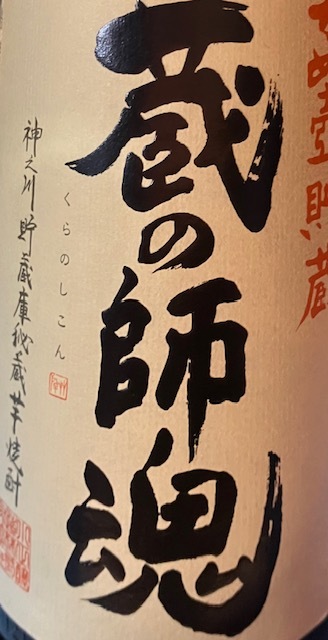 壺貯蔵
蔵の師魂
くらのしこん
神之川 貯蔵庫秘蔵芋焼酎